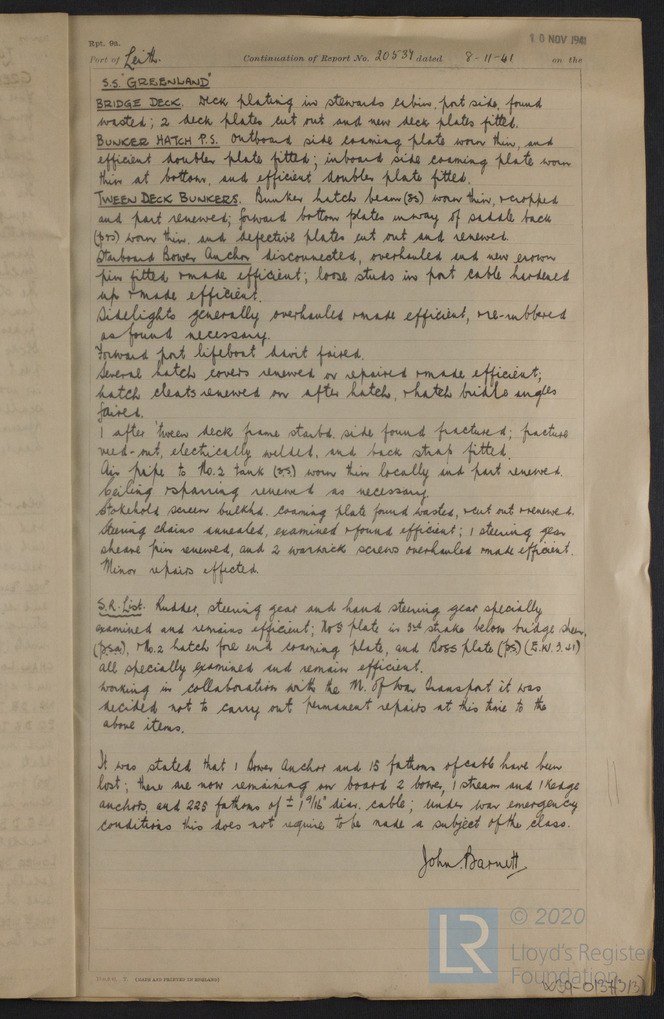 Rpt. 9a.
10 NOV 1941
Port of Leith. Continuation of Report No. 20537 dated 8-11-41 on the
S.S. "GREENLAND"
BRIDGE DECK. Deck plating in stewards cabin, port side, found
wasted; 2 deck plates cut out and new deck plates fitted.
BUNKER HATCH P.S. Outboard side coaming plate worn thin, and
efficient doubler plate fitted; inboard side coaming plate worn
thin at bottom, and efficient doubler plate fitted.
TWEEN DECK BUNKERS. Bunker hatch beam (ss) worn thin, & cropped
and part renewed; forward bottom plates inway of saddle back
(p&s) worn thin, and defective plates cut out and renewed.
Starboard Bower Anchor disconnected, overhauled and new crown
pin fitted & made efficient; loose studs in port cable hardened
up & made efficient.
Sidelights generally overhauled & made efficient, & re-rubbered
as found necessary.
Forward port lifeboat davit faired.
Several hatch covers renewed or repaired & made efficient;
hatch cleats renewed on after hatch, & hatch bridle angles
faired.
1 after 'tween deck frame starbd. side found fractured; fracture
veed-out, electrically welded, and back strap fitted.
Air pipe to No.2 tank (ss) worn thin locally and part renewed.
Ceiling & sparring renewed as necessary.
Stokehold screen bulkhd. coaming plate found wasted, & cut out & renewed.
Steering chains annealed, examined & found efficient; 1 steering gear
sheave pin renewed, and 2 warwick screws overhauled & made efficient.
Minor repairs effected.
S.R. List. Rudder, steering gear and hand steering gear specially
examined and remains efficient; No 3 plate in 3rd strake below bridge sheer,
No.2 hatch fore end coaming plate, and Boss plate (ps)
all specially examined and remain efficient.
Working in collaboration with the M. of War Transport it was
decided not to carry out permanent repairs at this time to the
above items.
It was stated that 1 Bower Anchor and 15 fathoms of cable have been
lost; there are now remaining on board 2 bower, 1 stream and 1 kedge
anchors, and 225 fathoms of ± 1 9/16" diar. cable; under war emergency
conditions this does not require to be made a subject of the class.
John Barnett
(MADE AND PRINTED IN ENGLAND)
LR
© 2020
Lloyd's Register
Foundation